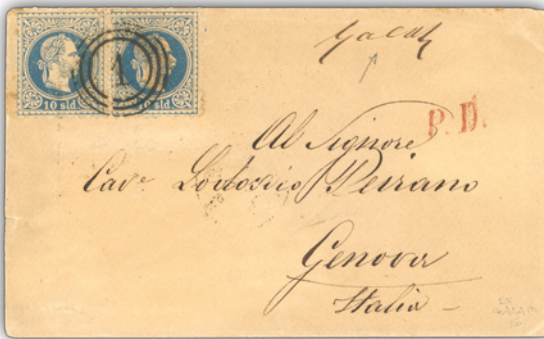 10 sld 10 sld
1
Galatz
P. D.
Al Signore
Cavᵉ Lodovico Peirano
Genova
Italia